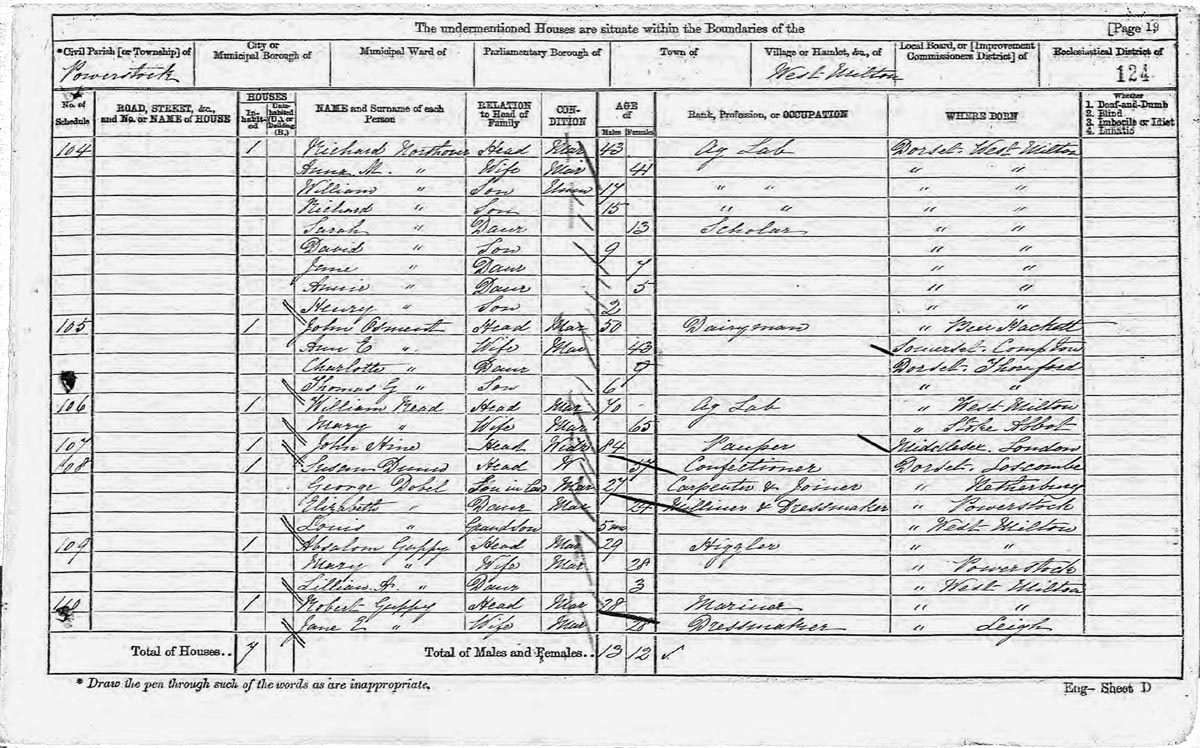 The undermentioned Houses are situate within the Boundaries of the [Page 19
*Civil Parish [or Township] of City or Municipal Borough of Municipal Ward of Parliamentary Borough of Town of Village or Hamlet, &c., of Local Board, or [Improvement Commissioners District] of Ecclesiastical District of
Powerstock West Milton 124
No. of Schedule ROAD, STREET, &c., and No. or NAME of HOUSE HOUSES Inhabited Uninhabited (U.), or Building (B.) NAME and Surname of each Person RELATION to Head of Family CONDITION AGE of Males Females Rank, Profession, or OCCUPATION WHERE BORN Whether 1. Deaf-and-Dumb 2. Blind 3. Imbecile or Idiot 4. Lunatic
104 1 Richard Northover Head Mar 43 Ag Lab Dorset West Milton
Anna M. " Wife Mar 41 " "
William " Son Unm 17 " " " "
Richard " Son 15 " " " "
Sarah " Daur 13 Scholar " "
David " Son 9 " "
Jane " Daur 7 " "
Annie " Daur 5 " "
Henry " Son 2 " "
105 1 John Osment Head Mar 50 Dairyman " Beer Hackett
Ann E " Wife Mar 43 Somerset Compton
Charlotte " Daur 9 Dorset Thornford
Thomas G " Son 6 " "
106 1 William Read Head Mar 70 Ag Lab " West Milton
Mary " Wife Mar 65 " Stoke Abbot
107 1 John Hine Head Widr 84 Pauper Middlesex London
108 1 Susan Head W 57 Confectioner Dorset Loscombe
George Dobel Son in Law Mar 27 Carpenter & Joiner " Netherbury
Elizabeth " Daur Mar 24 Milliner & Dressmaker " Powerstock
Louis " Grandson 5 mo " West Milton
109 1 Absalom Guppy Head Mar 29 Higgler " "
Mary " Wife Mar 28 " Powerstock
Lillian A. " Daur 3 " West Milton
110 1 Robert Guppy Head Mar 28 Mariner " "
Jane E " Wife Mar 28 Dressmaker " Leigh
Total of Houses.. 7 Total of Males and Females.. 13 12
* Draw the pen through such of the words as are inappropriate. Eng- Sheet D